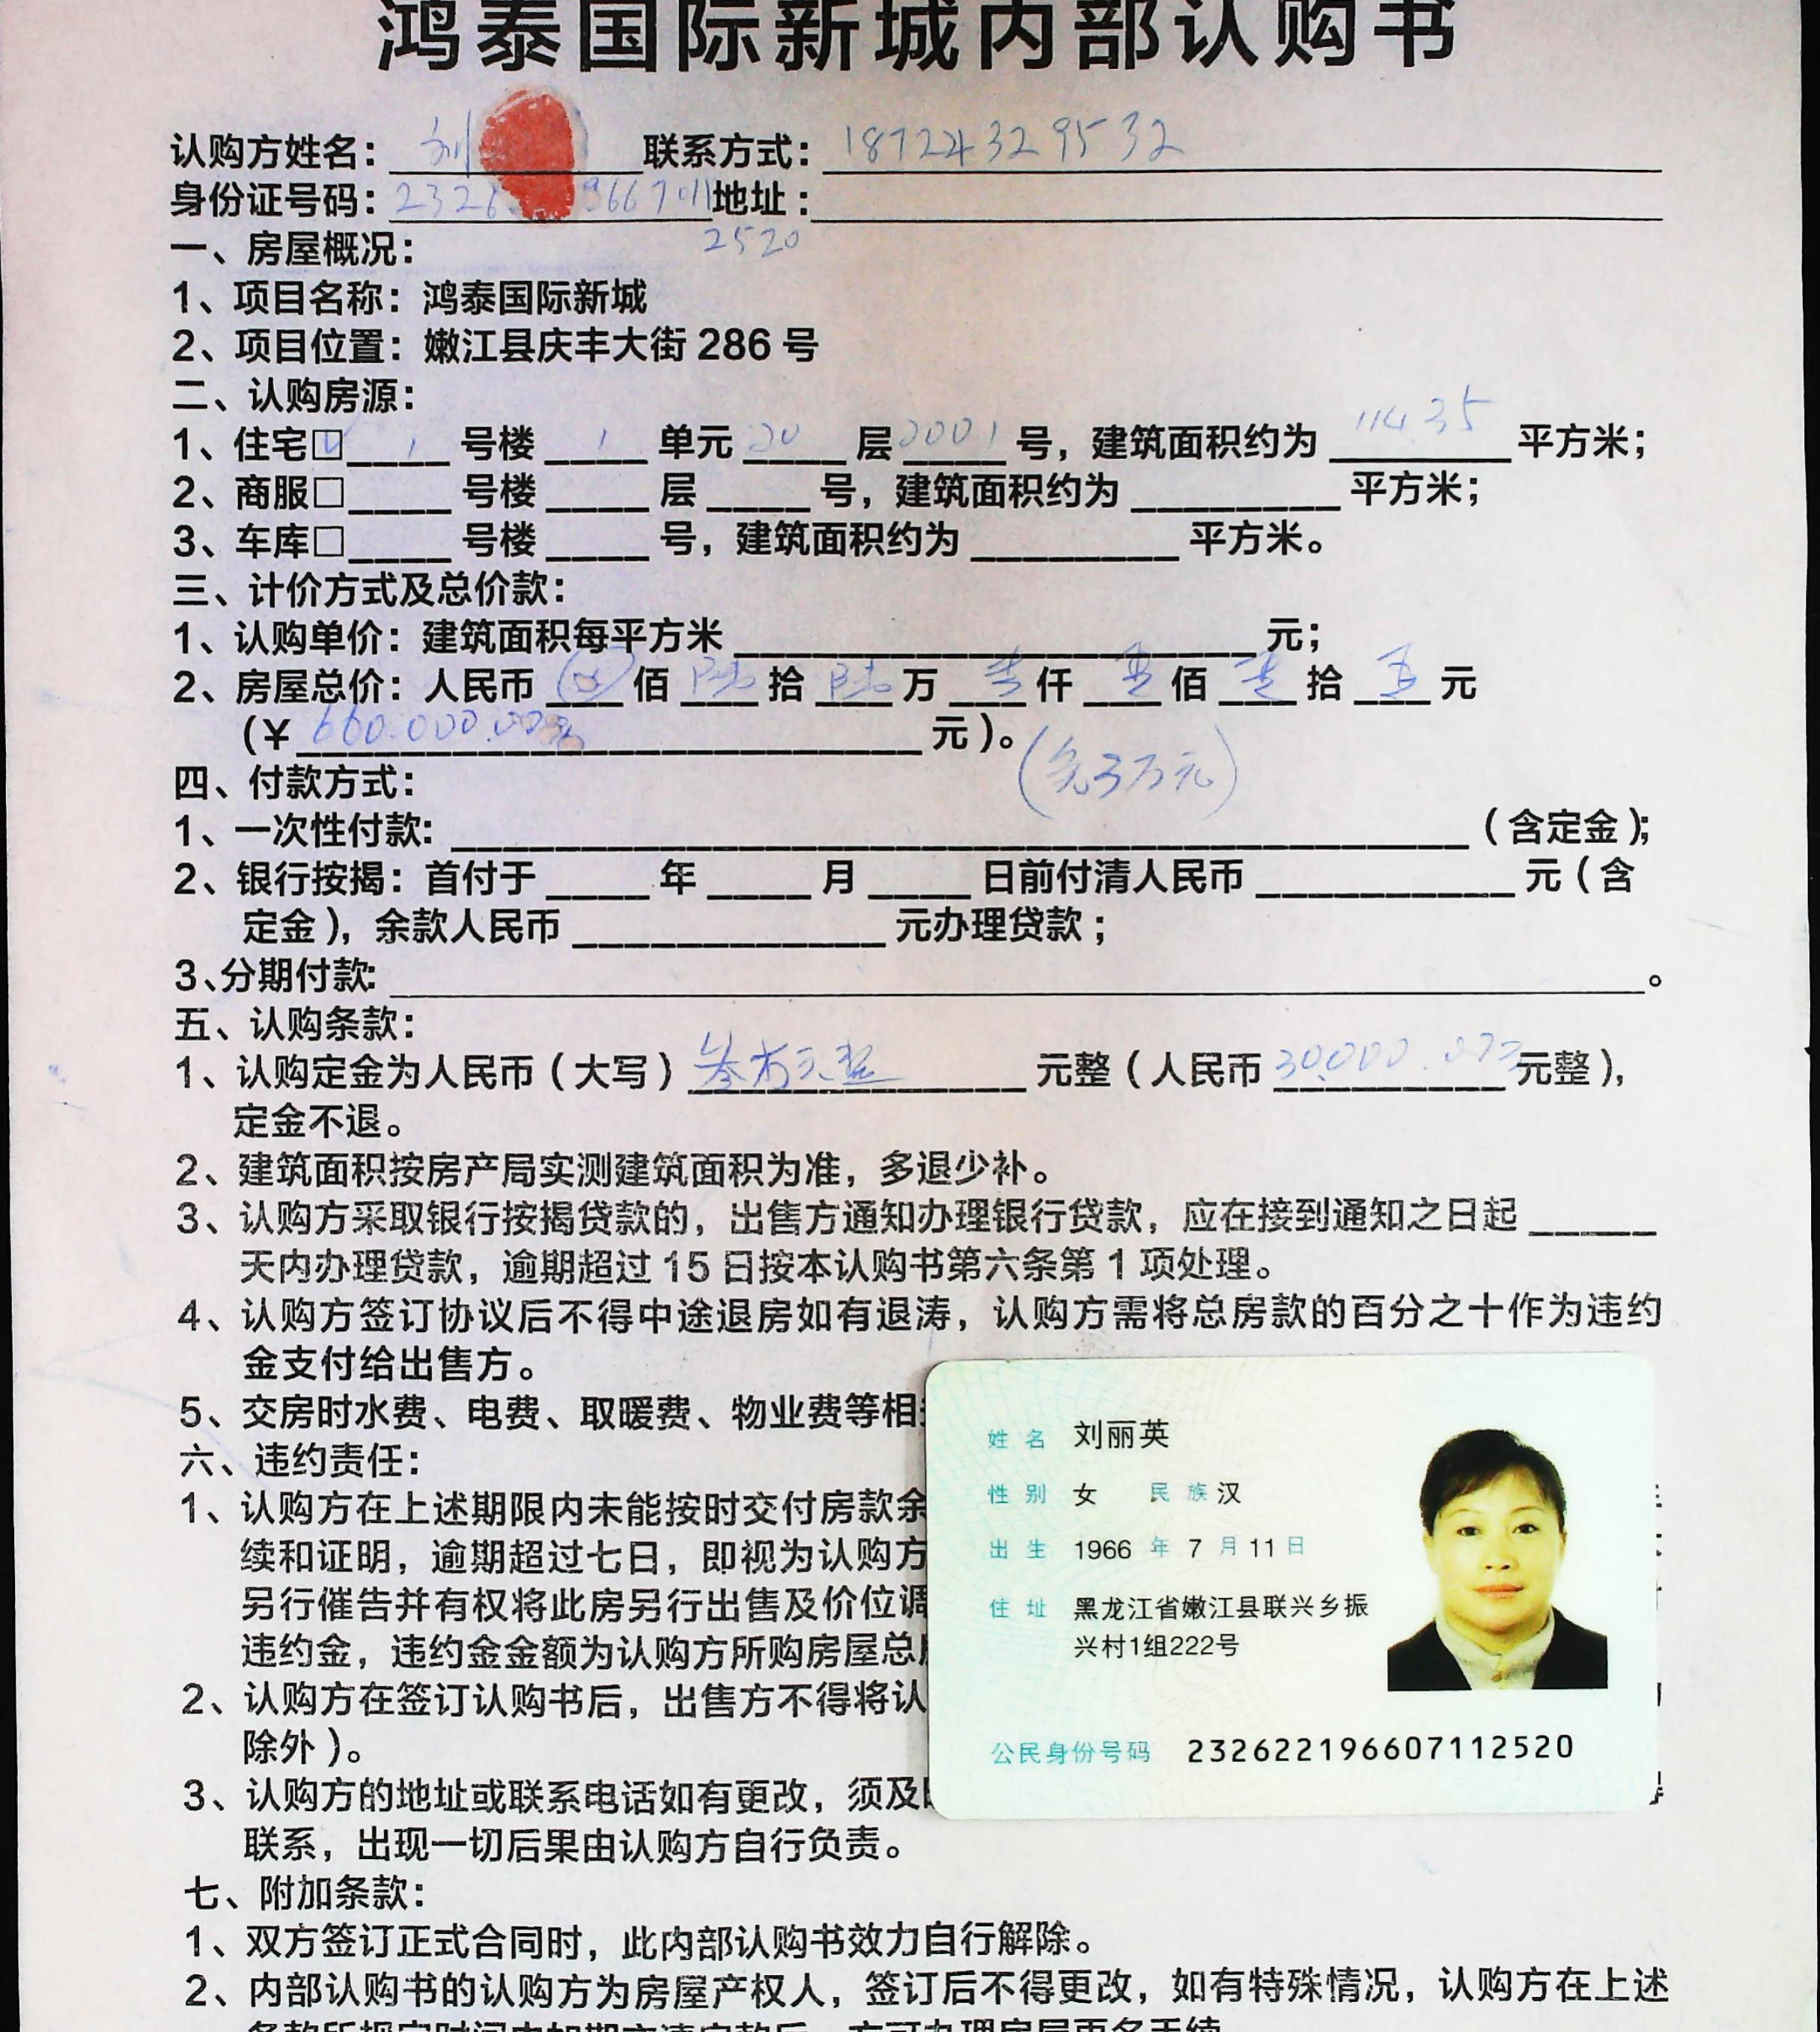 鸿泰国际新城内部认购书
认购方姓名：刘 联系方式：18724329532
身份证号码：2326 9667011 地址：
2520
一、房屋概况：
1、项目名称：鸿泰国际新城
2、项目位置：嫩江县庆丰大街 286 号
二、认购房源：
1、住宅☑ 1 号楼 1 单元 20 层 2001 号，建筑面积约为 114.35 平方米；
2、商服□____ 号楼 ____ 层 ____ 号，建筑面积约为 ________ 平方米；
3、车库□____ 号楼 ____ 号，建筑面积约为 ________ 平方米。
三、计价方式及总价款：
1、认购单价：建筑面积每平方米 ____________ 元；
2、房屋总价：人民币 佰 陆 拾 陆 万 仟 佰 拾 五 元
(￥ 660.000.00 元)。
(免3万元)
四、付款方式：
1、一次性付款: ____________ (含定金);
2、银行按揭：首付于 ____ 年 ____ 月 ____ 日前付清人民币 ________ 元 ( 含
定金 )，余款人民币 ________ 元办理贷款 ;
3、分期付款: ____________ 。
五、认购条款：
1、认购定金为人民币 ( 大写 ) 叁万元整 元整 ( 人民币 30.000 元整 )，
定金不退。
2、建筑面积按房产局实测建筑面积为准，多退少补。
3、认购方采取银行按揭贷款的，出售方通知办理银行贷款，应在接到通知之日起 ______
天内办理贷款，逾期超过 15 日按本认购书第六条第 1 项处理。
4、认购方签订协议后不得中途退房如有退涛，认购方需将总房款的百分之十作为违约
金支付给出售方。
5、交房时水费、电费、取暖费、物业费等相
六、违约责任：
1、认购方在上述期限内未能按时交付房款余
续和证明，逾期超过七日，即视为认购方
另行催告并有权将此房另行出售及价位调
违约金，违约金金额为认购方所购房屋总
2、认购方在签订认购书后，出售方不得将认
除外 )。
3、认购方的地址或联系电话如有更改，须及
联系，出现一切后果由认购方自行负责。
七、附加条款：
1、双方签订正式合同时，此内部认购书效力自行解除。
2、内部认购书的认购方为房屋产权人，签订后不得更改，如有特殊情况，认购方在上述
姓名 刘丽英
性别 女 民族 汉
出生 1966 年 7 月 11 日
住址 黑龙江省嫩江县联兴乡振
兴村1组222号
公民身份号码 232622196607112520